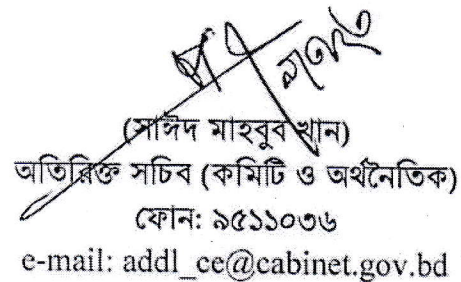 (সাঈদ মাহবুব খান)
অতিরিক্ত সচিব (কমিটি ও অর্থনৈতিক)
ফোন: ৯৫১১০৩৬
e-mail: addl_ce@cabinet.gov.bd